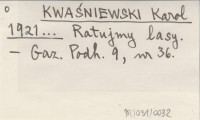 KWAŚNIEWSKI Karol
1921... Ratujmy lasy.
– Gaz. Podh. 9, nr 36.